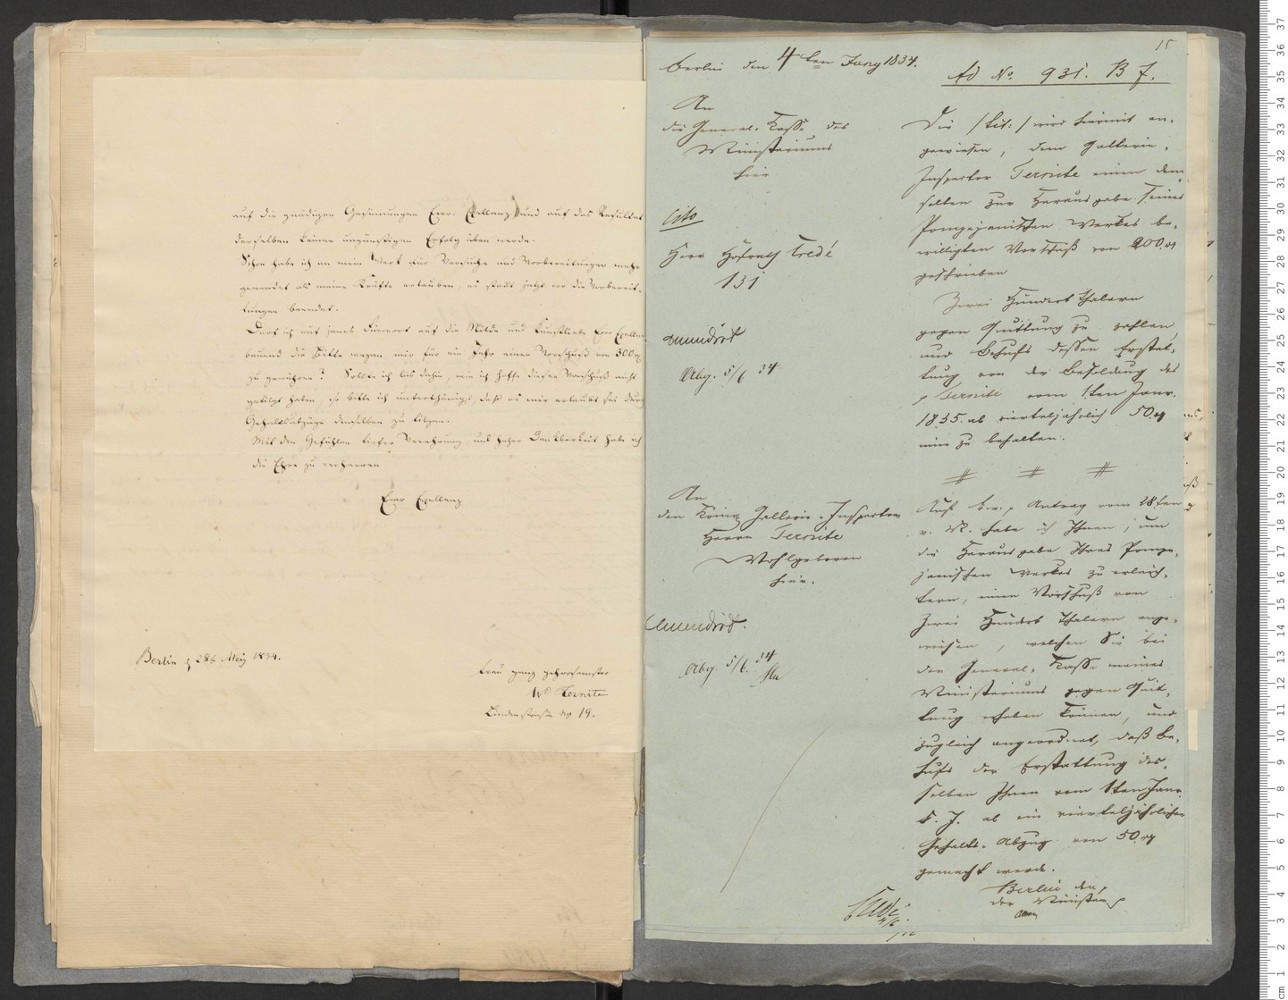 auf die gnädigen Gesinnungen Euer Excellenz und auf das Resultat
derselben keinen ungünstigen Erfolg üben werde.
Schon habe ich an mein Werk für Versuche und Vorbereitungen mehr
gewendet als meine Kräfte erlauben, es stockt jetzt wo die Vorberei-
tungen beendet.
Darf ich auf jenes Suivert auf die Milde und Euer Excellenz
bauend die Bitte wagen mir für ein Jahr einen Vorschuß von 300
zu gewähren? Sollte ich bis dahin, wie ich hoffe diesen Vorschuß nicht
getilgt haben, so bitte ich unterthänigst daß es mir erlaubt sei durch
Gehaltsabzüge denselben zu tilgen.
Mit den Gefühlen tiefer Verehrung und hoher Dankbarkeit habe ich
die Ehre zu verharren
Euer Excellenz
Berlin d 28t May 1834.
treu ganz gehorsamster
W. Ternite
Lindenstraße No 19.
15
Berlin den 4ten Juny 1834.
Ad No. 931. B J.
An
die General-Kasse des
Ministeriums
hier
Cito
Herr Hofrath Credé
131
mundirt
Abg. 5/6 34
Die /tit:/ wird hiermit an-
gewiesen, dem Gallerie-
Inspector Ternite einen dem-
selben zur Herausgabe seines
Pompejanischen Werkes be-
willigten Vorschuß von 200
geschrieben
Zwei Hundert Thalern
gegen Quittung zu zahlen,
und Behufs dessen Erstat-
tung von der Besoldung des
p Ternite vom 1ten Janr.
1835. ab vierteljährlich 50
inne zu behalten.
An
den Königl. Gallerie-Inspector
Herrn Ternite
Wohlgeboren
hier.
mundirt.
Abg. 5/6. 34
Auf Ew. p Antrag vom 28ten
v. M. habe ich Ihnen, um
die Herausgabe Ihres Pompe-
janischen Werkes zu erleich-
tern, einen Vorschuß von
Zwei Hundert Thalern ange-
wiesen, welchen Sie bei
der General-Kasse meines
Ministeriums gegen Quit-
tung erheben können, und
zugleich angeordnet, daß be-
hufs der Erstattung des-
selben Ihnen vom 1ten Janr.
k. J. ab ein vierteljährlicher
Gehalts-Abzug von 50
gemacht werde.
Berlin den
der Minister p
Credé